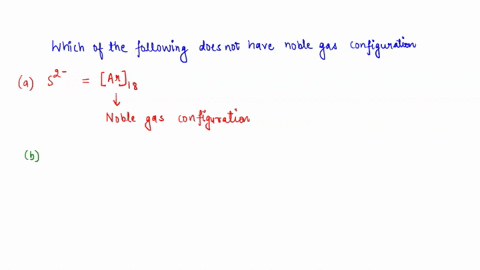 Which of the following does not have noble gas configuration
(a) S²⁻ = [Ar]₁₈
↓
Noble gas configuration
(b)